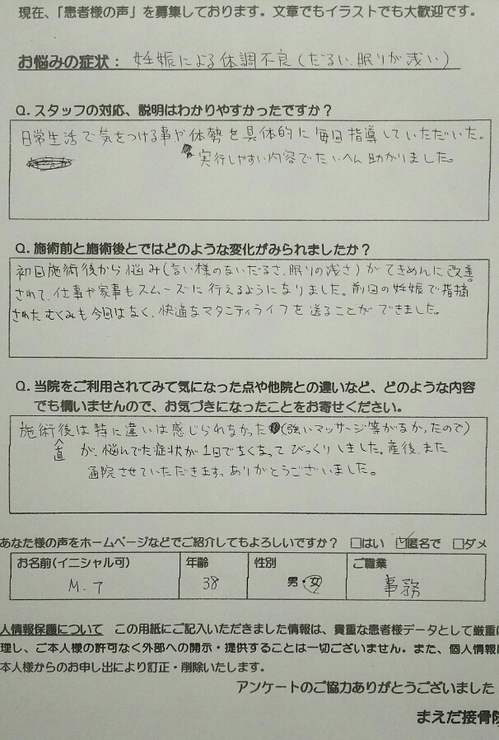 現在、「患者様の声」を募集しております。文章でもイラストでも大歓迎です。
お悩みの症状： 妊娠による体調不良（だるい、眠りが浅い）
Q. スタッフの対応、説明はわかりやすかったですか？
日常生活で気をつける事や体勢を具体的に毎回指導していただいた。
実行しやすい内容でたいへん助かりました。
Q. 施術前と施術後とではどのような変化がみられましたか？
初回施術後から悩み（言い様のないだるさ、眠りの浅さ）がてきめんに改善
されて、仕事や家事もスムーズに行えるようになりました。前回の妊娠で指摘
されたむくみも今回はなく、快適なマタニティライフを送ることができました。
Q. 当院をご利用されてみて気になった点や他院との違いなど、どのような内容
でも構いませんので、お気づきになったことをお寄せください。
施術直後は特に違いは感じられなかった（強いマッサージ等がなかったので）
が、悩んでた症状が1日でなくなってびっくりしました。産後、また
通院させていただきます。ありがとうございました。
あなた様の声をホームページなどでご紹介してもよろしいですか？ □はい ☑匿名で □ダメ
お名前（イニシャル可） 年齢 性別 ご職業
M.T 38 男・女 事務
人情報保護について この用紙にご記入いただきました情報は、貴重な患者様データとして厳重に
理し、ご本人様の許可なく外部への開示・提供することは一切ございません。また、個人情報は
本人様からのお申し出により訂正・削除いたします。
アンケートのご協力ありがとうございました
まえだ接骨院